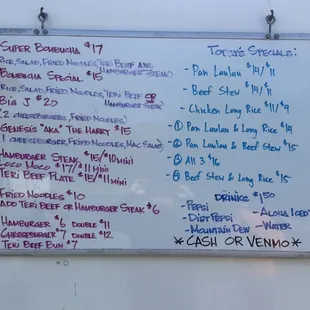 Super Bombucha $17
Rice, Salad, Fried Noodles, Teri Beef AND
Hamburger Steak
Bombucha Special $15
Rice, Salad, Fried Noodles, Teri Beef OR
Hamburger Steak
Big J $20
(2 cheeseburgers, Fried Noodles)
Genesis "AKA" The Harry $15
(1 cheeseburger, Fried Noodles, Mac Salad)
Hamburger Steak $15/$10 mini
Loco Moco $17/$11 mini
Teri Beef Plate $15/$11 mini
Fried Noodles $10
Add Teri Beef or Hamburger Steak $6
Hamburger $6 Double $11
Cheeseburger $7 Double $12
Teri Beef Bun $7
Today's Specials:
- Pan Laulau $14/$11
- Beef Stew $14/$11
- Chicken Long Rice $11/$9
① Pan Laulau & Long Rice $14
② Pan Laulau & Beef Stew $15
③ All 3 $16
④ Beef Stew & Long Rice $15
Drinks $1.50
- Pepsi
- Diet Pepsi
- Mountain Dew
- Aloha Iced
- Water
*CASH OR VENMO*